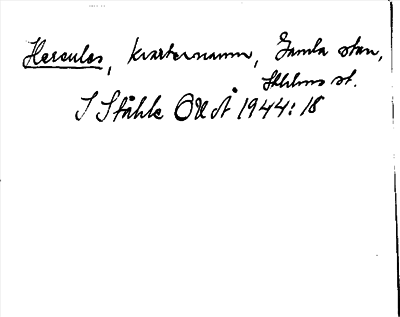 Hercules, kvartersnamn, Gamla stan,
Sthlms st.
I Ståhle OUÅ 1944: 18